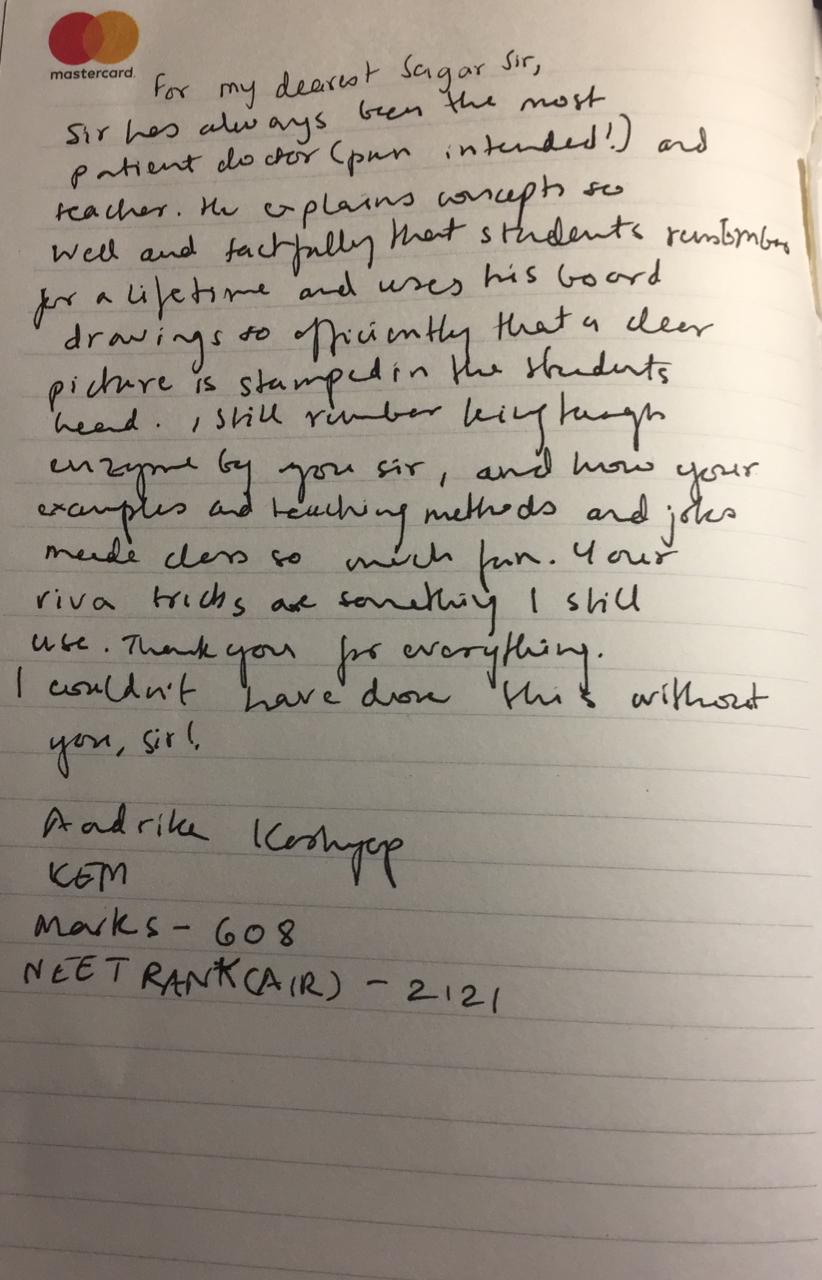 mastercard.
For my dearest Sagar Sir,
Sir has always been the most
patient doctor (pun intended!) and
teacher. He explains concepts so
well and tactfully that students
for a lifetime and uses his board
drawings so efficiently that a clear
picture is stamped in the students
head. I still being taught
enzyme by you sir, and how your
examples and teaching methods and jokes
made class so much fun. Your
riva tricks are something I still
use. Thank you for everything.
I couldn't have done this without
you, sir!
Aadrika Kashyap
KEM
Marks - 608
NEET RANK (AIR) - 2121